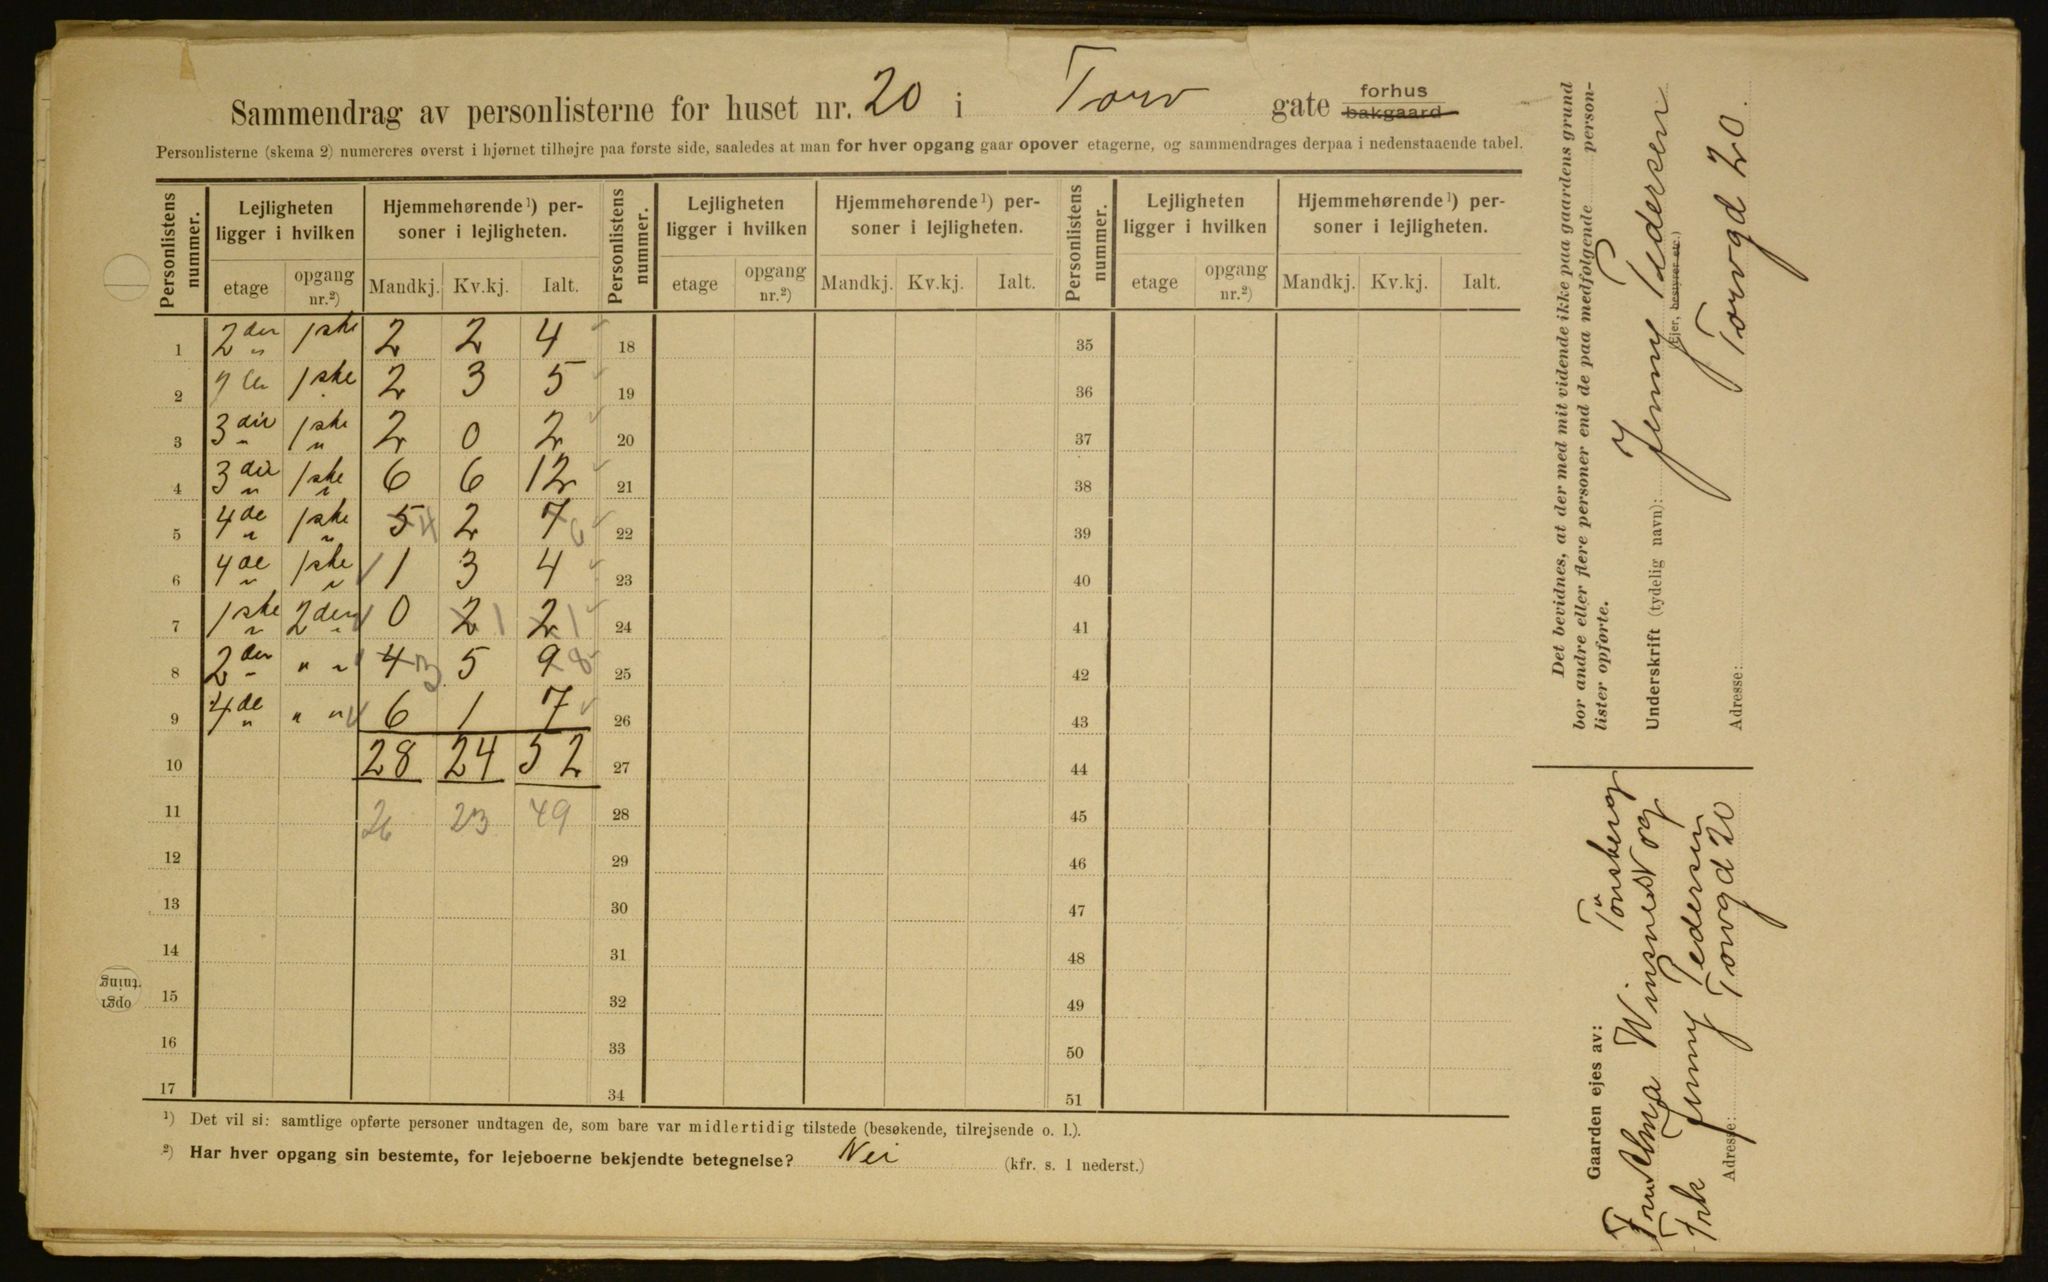 Sammendrag av personlisterne for huset nr. 20 i Torv gate forhus bakgaard
Personlisterne (skema 2) numereres øverst i hjørnet tilhøjre paa første side, saaledes at man for hver opgang gaar opover etagerne, og sammendrages derpaa i nedenstaaende tabel.
Personlistens nummer. Lejligheten ligger i hvilken Hjemmehørende ¹) personer i lejligheten. Personlistens nummer. Lejligheten ligger i hvilken Hjemmehørende ¹) personer i lejligheten. Personlistens nummer. Lejligheten ligger i hvilken Hjemmehørende ¹) personer i lejligheten.
etage opgang nr.²) Mandkj. Kv.kj. Ialt. etage opgang nr.²) Mandkj. Kv.kj. Ialt. etage opgang nr.²) Mandkj. Kv.kj. Ialt.
1 2den 1ste 2 2 4 18 35
2 1ste 2 3 5 19 36
3 3die 1ste 2 0 2 20 37
4 3die 1ste 6 6 12 21 38
5 4de 1ste 5 4 2 7 6 22 39
6 4de 1ste 1 3 4 23 40
7 1ste 2den 0 2 1 2 1 24 41
8 2den " " 4 3 5 9 8 25 42
9 4de " " 6 1 7 26 43
10 28 24 52 27 44
11 26 23 49 28 45
12 29 46
13 30 47
14 31 48
15 32 49
16 33 50
17 34 51
¹) Det vil si: samtlige opførte personer undtagen de, som bare var midlertidig tilstede (besøkende, tilrejsende o. l.).
²) Har hver opgang sin bestemte, for lejeboerne bekjendte betegnelse? Nei (kfr. s. 1 nederst.)
Det bevidnes, at der med mit vidende ikke paa gaardens grund
bor andre eller flere personer end de paa medfølgende person-
lister opførte.
Underskrift (tydelig navn): Jenny Pedersen
Ejer, bestyrer etc.)
Adresse: Torvgd 20.
Gaarden ejes av:
Tönsberg
Fru Alma Winsnes og
Frk Jenny Pedersen
Adresse: Torvgd 20